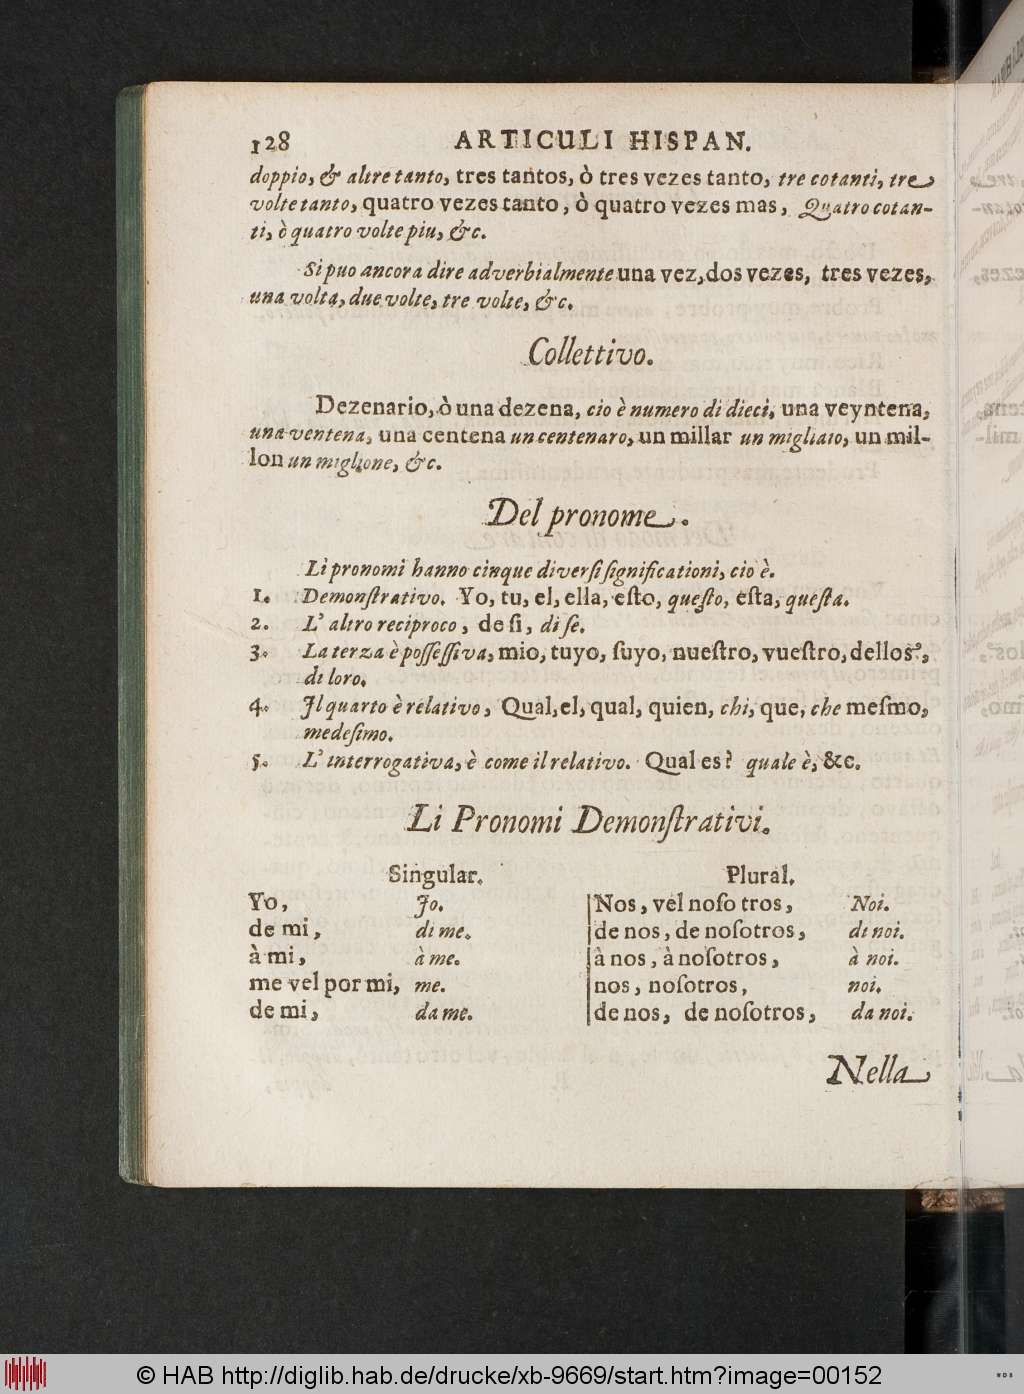 128 ARTICULI HISPAN.
doppio, & altre tanto, tres tantos, ò tres vezes tanto, tre cotanti, tre
volte tanto, quatro vezes tanto, ò quatro vezes mas, Quatro cotan-
ti, ò quatro volte piu, &c.
Si puo ancora dire adverbialmente una vez, dos vezes, tres vezes,
una volta, due volte, tre volte, &c.
Collettivo.
Dezenario, ò una dezena, cio è numero di dieci, una veyntena,
una ventena, una centena un centenaro, un millar un migliaio, un mil-
lon un miglione, &c.
Del pronome.
Li pronomi hanno cinque diversi significationi, cio è.
1. Demonſtrativo. Yo, tu, el, ella, eſto, queſto, eſta, queſta.
2. L' altro reciproco, de ſi, di ſe.
3. La terza è poſſeſſiva, mio, tuyo, ſuyo, nueſtro, vueſtro, dellos,
di loro.
4. Il quarto è relativo, Qual, el, qual, quien, chi, que, che meſmo,
medeſimo.
5. L' interrogativa, è come il relativo. Qual es? quale è, &c.
Li Pronomi Demonſtrativi.
Singular. Plural.
Yo, Jo. Nos, vel noſo tros, Noi.
de mi, di me. de nos, de noſotros, di noi.
à mi, à me. à nos, à noſotros, à noi.
me vel por mi, me. nos, noſotros, noi.
de mi, da me. de nos, de noſotros, da noi.
Nella
© HAB http://diglib.hab.de/drucke/xb-9669/start.htm?image=00152